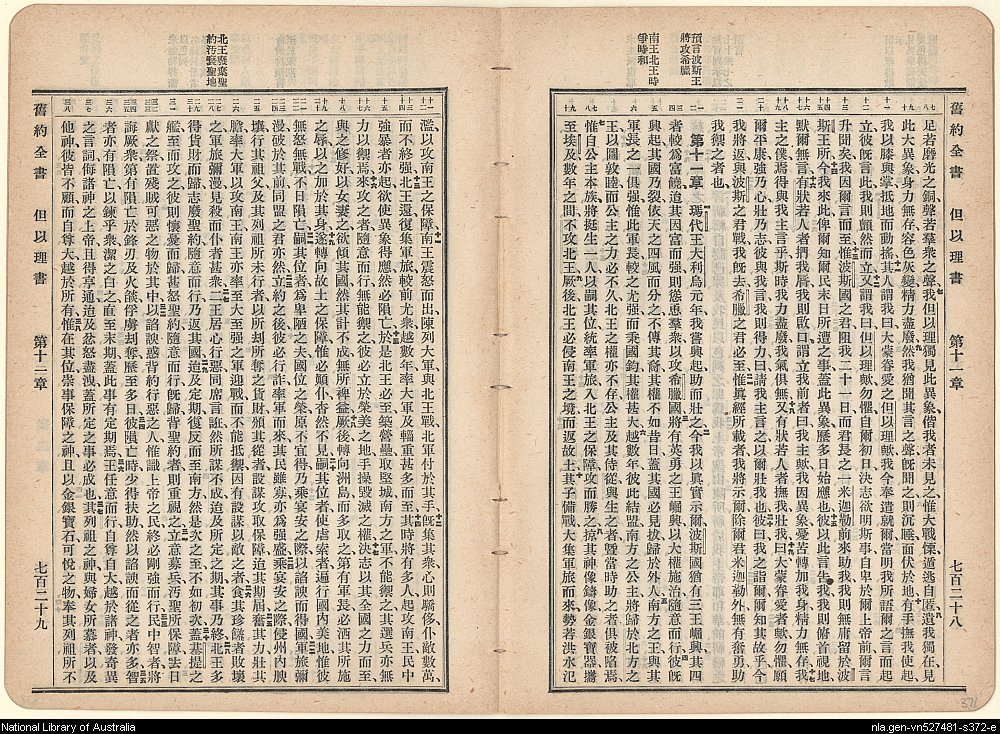 舊約全書　但以理書　第十一章　七百二十八
足若磨光之銅聲若羣衆之聲我但以理獨見此異象偕我者未見之惟大戰慄遁逃自匿遺我獨在見
此大異象身力無存容色灰變精力盡廢然我猶聞其言之聲旣聞之則沉睡面伏於地有手撫我使起
我以膝與掌抵地而動搖其人謂我曰大蒙眷愛之但以理歟我今奉遣就爾當明我所語爾之言而起
立彼旣言此我則顫然而立又謂我曰但以理歟勿懼自爾初日決志欲明斯事自卑於爾上帝前爾言
升聞矣我因爾言而至惟波斯國之君阻我二十一日而君長之一米迦勒前來助我我則無庸留於波
斯王所今我來此俾爾知爾民末日所遭之事蓋此異象歷多日始應也彼以此言告我我則俯首視地
默爾無言有狀若人者捫我唇我則啟口謂立我前者曰我主歟我因異象憂苦轉加我身精力無存我
主之僕焉得與我主言乎斯時我力盡廢我氣俱無又有狀若人者撫我壯我曰大蒙眷愛者歟勿懼願
爾平康強乃心壯乃志彼與我言我則得力曰請我主言之以爾壯我也彼曰我之詣爾爾知其故乎今
我將返與波斯之君戰我旣去希臘之君必至惟眞經所載者我將示爾除爾君米迦勒外無有奮勇助
我禦之者也
第十一章　瑪代王大利烏元年我嘗興起助而壯之今我以眞實示爾波斯國猶有三王崛興其四
者較爲富饒迨其因富而强則慫恿羣衆以攻希臘國將有英勇之王崛興以大權施治隨意而行彼旣
興起其國乃裂依天之四風而分之不傳其裔其權不如昔日蓋其國必見拔歸於外人南方之王與其
軍長之一俱强惟此軍長較之尤强而秉國鈞其權甚大越數年彼此結盟南方之公主將歸於北方之
王以圖敦睦而公主之力必不久北王之權亦不存公主及其侍從與生之者曁當時助之者俱被陷焉
惟自公主本族將挺生一人以嗣其位統率軍旅入北王之保障攻而勝之掠其神像鑄像金銀寶器攜
至埃及數年之間不攻北王厥後北王必侵南王之境而返故土其子備戰大集軍旅而來勢若洪水氾
預言波斯王將攻希臘
南王北王時爭時和
濫以攻南王之保障南王震怒而出陳列大軍與北王戰北軍付於其手旣集其衆心則驕侈仆敵數萬
而不終强北王還復集軍旅較前尤衆越數年率大軍及輜重甚多而至其時將有多人起攻南王民中
強暴者亦起欲使異象得應然必隕亡於是北王必至築營壘取堅城南方之軍不能禦之其選兵亦無
力以禦焉來攻之者隨意而行無能禦之彼必立於榮美之地手操毀滅之權決志以其全國之力而至
與之修好以女妻之欲傾其國然其計不成無所裨益厥後轉向洲島而多取之第有軍長必洒其所施
之辱以之加於其身遂轉向故土之保障惟必顚仆杳然不見嗣其位者使虐索者遍行國內美地惟彼
無怒無戰不日隕亡嗣其位者爲卑陋之夫國位之榮原不宜得乃乘宴安之際以諂諛而得國軍旅瀰
漫破於其前同盟之君亦然立約之後彼必行詐率軍而來其民雖寡亦爲强盛乘宴安之際侵州內腴
壤行其祖父及其列祖所未行者以所刦所奪之貨財頒其從者設謀攻取保障迨其期屆奮其力壯其
膽率大軍以攻南王南王亦率至大至强之軍迎戰而不能抵禦因有設謀以敵之者食其珍饈者敗壞
之軍旅瀰漫見殺而仆者甚衆二王居心行惡同席言誑然所謀不成迨及所定之期其事乃終北王多
得貨財而歸志廢聖約隨意而行乃返其國迨及定期復反而至南方然是次之至不如初次蓋基提之
艦至而攻之彼則懷憂而歸甚怒聖約隨意而行旣歸背聖約者則重視之立意募兵汚聖所保障去日
獻之祭置殘賊可惡之物於其中以諂諛惑背約行惡之人惟識上帝之民終必剛强而行民中智者將
誨厥衆第有隕亡於鋒刃及火燄俘虜刦奪歷至多日彼隕亡時少得扶助然以諂諛而從之者亦多智
者亦有隕亡以鍊乎衆潔之白之直至末期蓋此事有定期焉王任意而行自尊自大越於諸神發奇異
之言詞侮諸神之上帝且得亨通迨及忿怒盡洩蓋所定之事必成也其列祖之神與婦女所慕者以及
他神彼皆不顧而自尊大越於所有惟在其位崇事保障之神且以金銀寶石可悅之物奉其列祖所不
舊約全書　但以理書　第十二章　七百二十九
北王廢棄聖約汚褻聖地
National Library of Australia
nla.gen-vn527481-s372-e